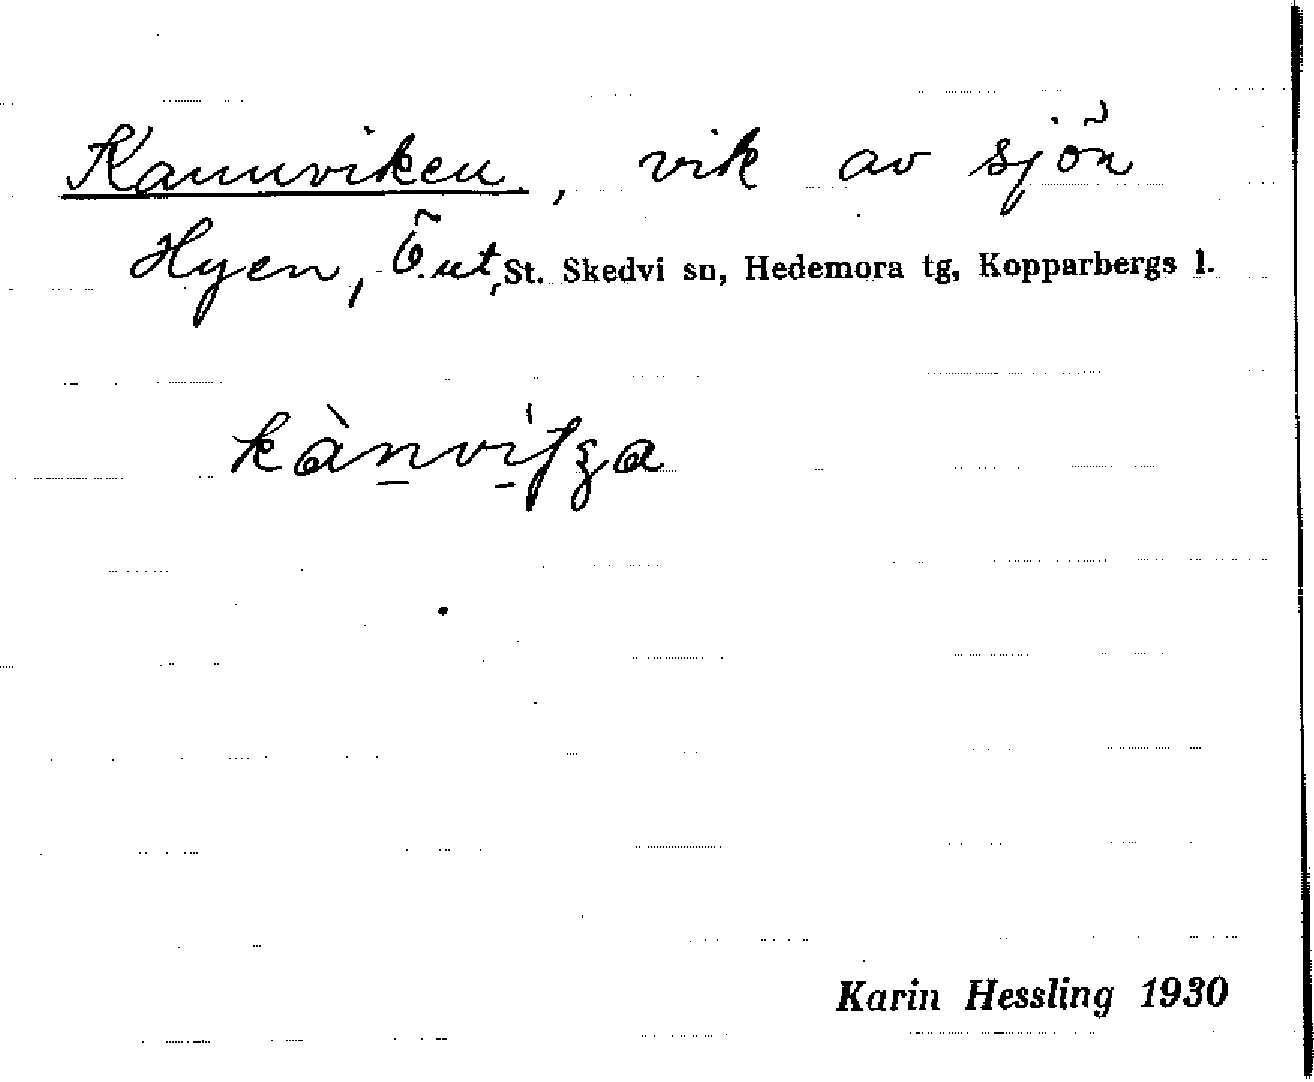 Kannviken, vik av sjön
Hyen, Ö. ut, St. Skedvi sn, Hedemora tg, Kopparbergs l.
Karin Hessling 1930